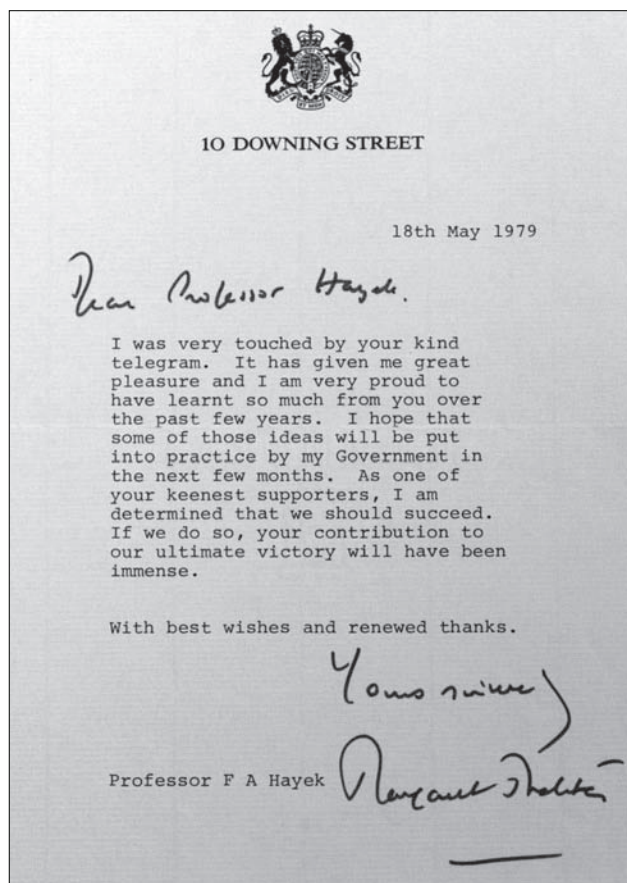 10 DOWNING STREET
18th May 1979
Dear Professor Hayek.
I was very touched by your kind
telegram. It has given me great
pleasure and I am very proud to
have learnt so much from you over
the past few years. I hope that
some of those ideas will be put
into practice by my Government in
the next few months. As one of
your keenest supporters, I am
determined that we should succeed.
If we do so, your contribution to
our ultimate victory will have been
immense.
With best wishes and renewed thanks.
Yours sincerely
Professor F A Hayek Margaret Thatcher